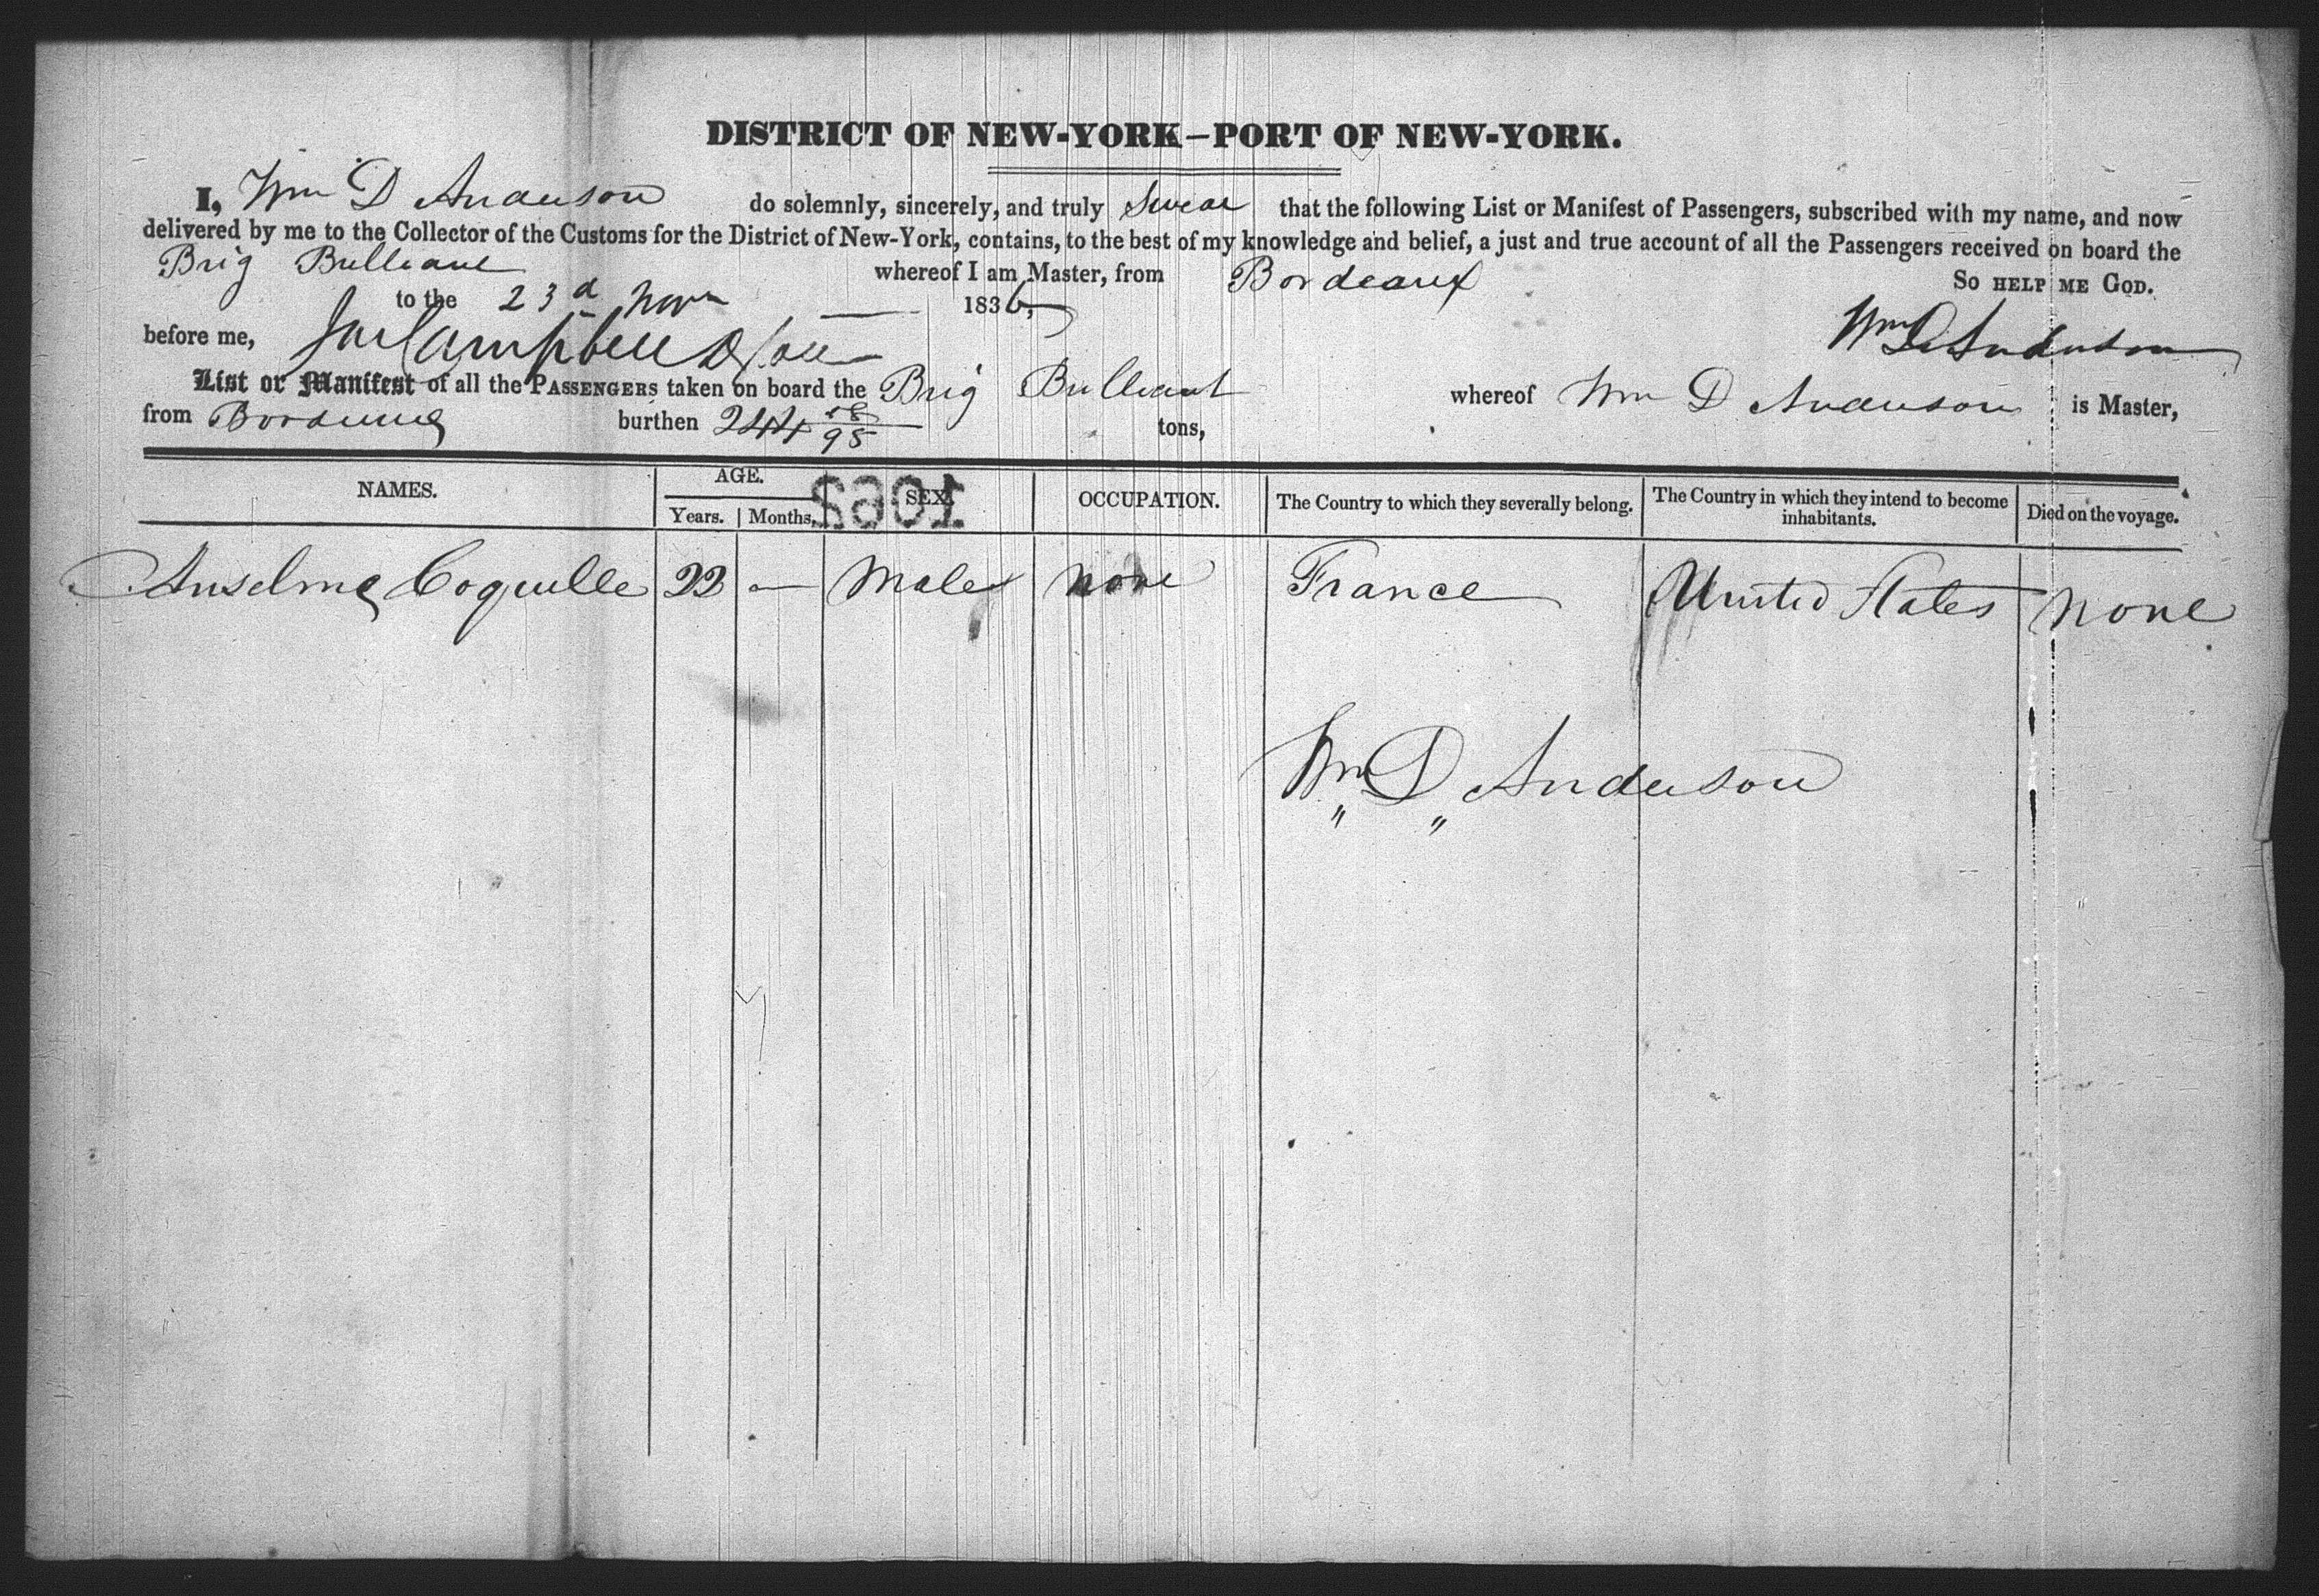 DISTRICT OF NEW-YORK—PORT OF NEW-YORK.
I, Wm D Anderson do solemnly, sincerely, and truly Swear that the following List or Manifest of Passengers, subscribed with my name, and now
delivered by me to the Collector of the Customs for the District of New-York, contains, to the best of my knowledge and belief, a just and true account of all the Passengers received on board the
Brig Brilliant whereof I am Master, from Bordeaux So HELP ME GOD.
to the 23d Nov 1836,
before me, Campbell Wm D Anderson
List or Manifest of all the PASSENGERS taken on board the Brig Brilliant whereof Wm D Anderson is Master,
from Bordeaux burthen 244 58/95 tons,
NAMES. AGE. SEX. OCCUPATION. The Country to which they severally belong. The Country in which they intend to become inhabitants. Died on the voyage.
Years. Months.
1062
Anselme Coquille 22 — Male none France United States none
Wm D Anderson